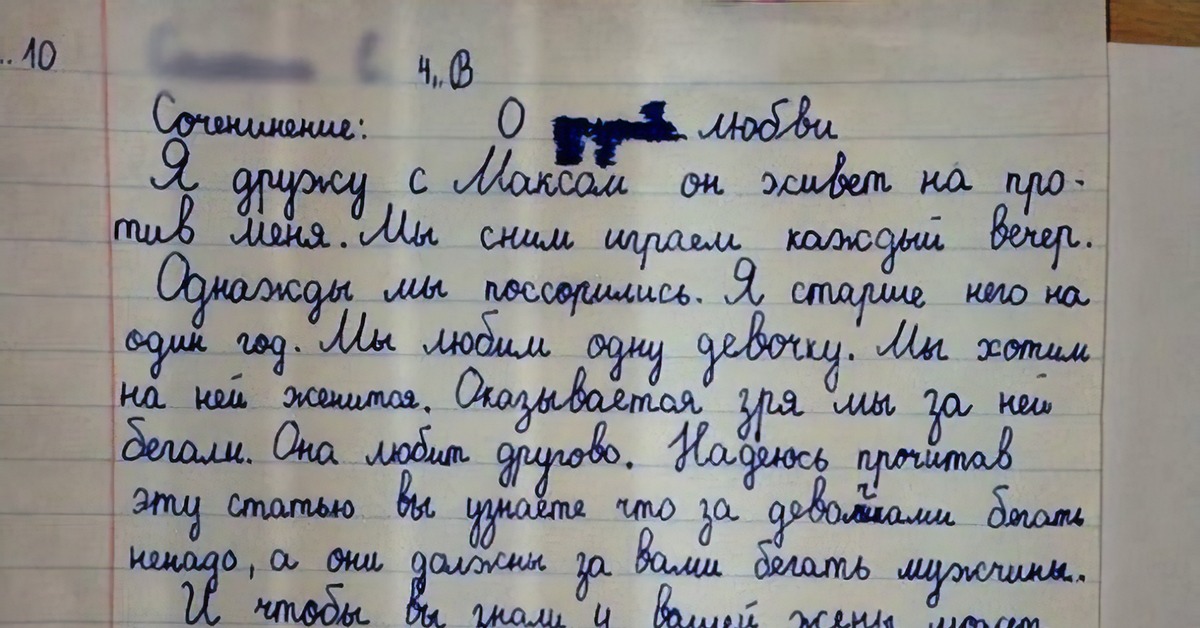 ..10 4„В
Соченинение: О любви
Я дружу с Максам он живет на про-
тив меня. Мы сним играем каждый вечер.
Однажды мы поссорились. Я старше него на
один год. Мы любим одну девочку. Мы хотим
на ней женится. Оказывается зря мы за ней
бегали. Она любит другово. Надеюсь прочитав
эту статью вы узнаете что за девочками бегать
ненадо, а они должны за вами бегать мужчины.
И чтобы вы знали у вашей жены может